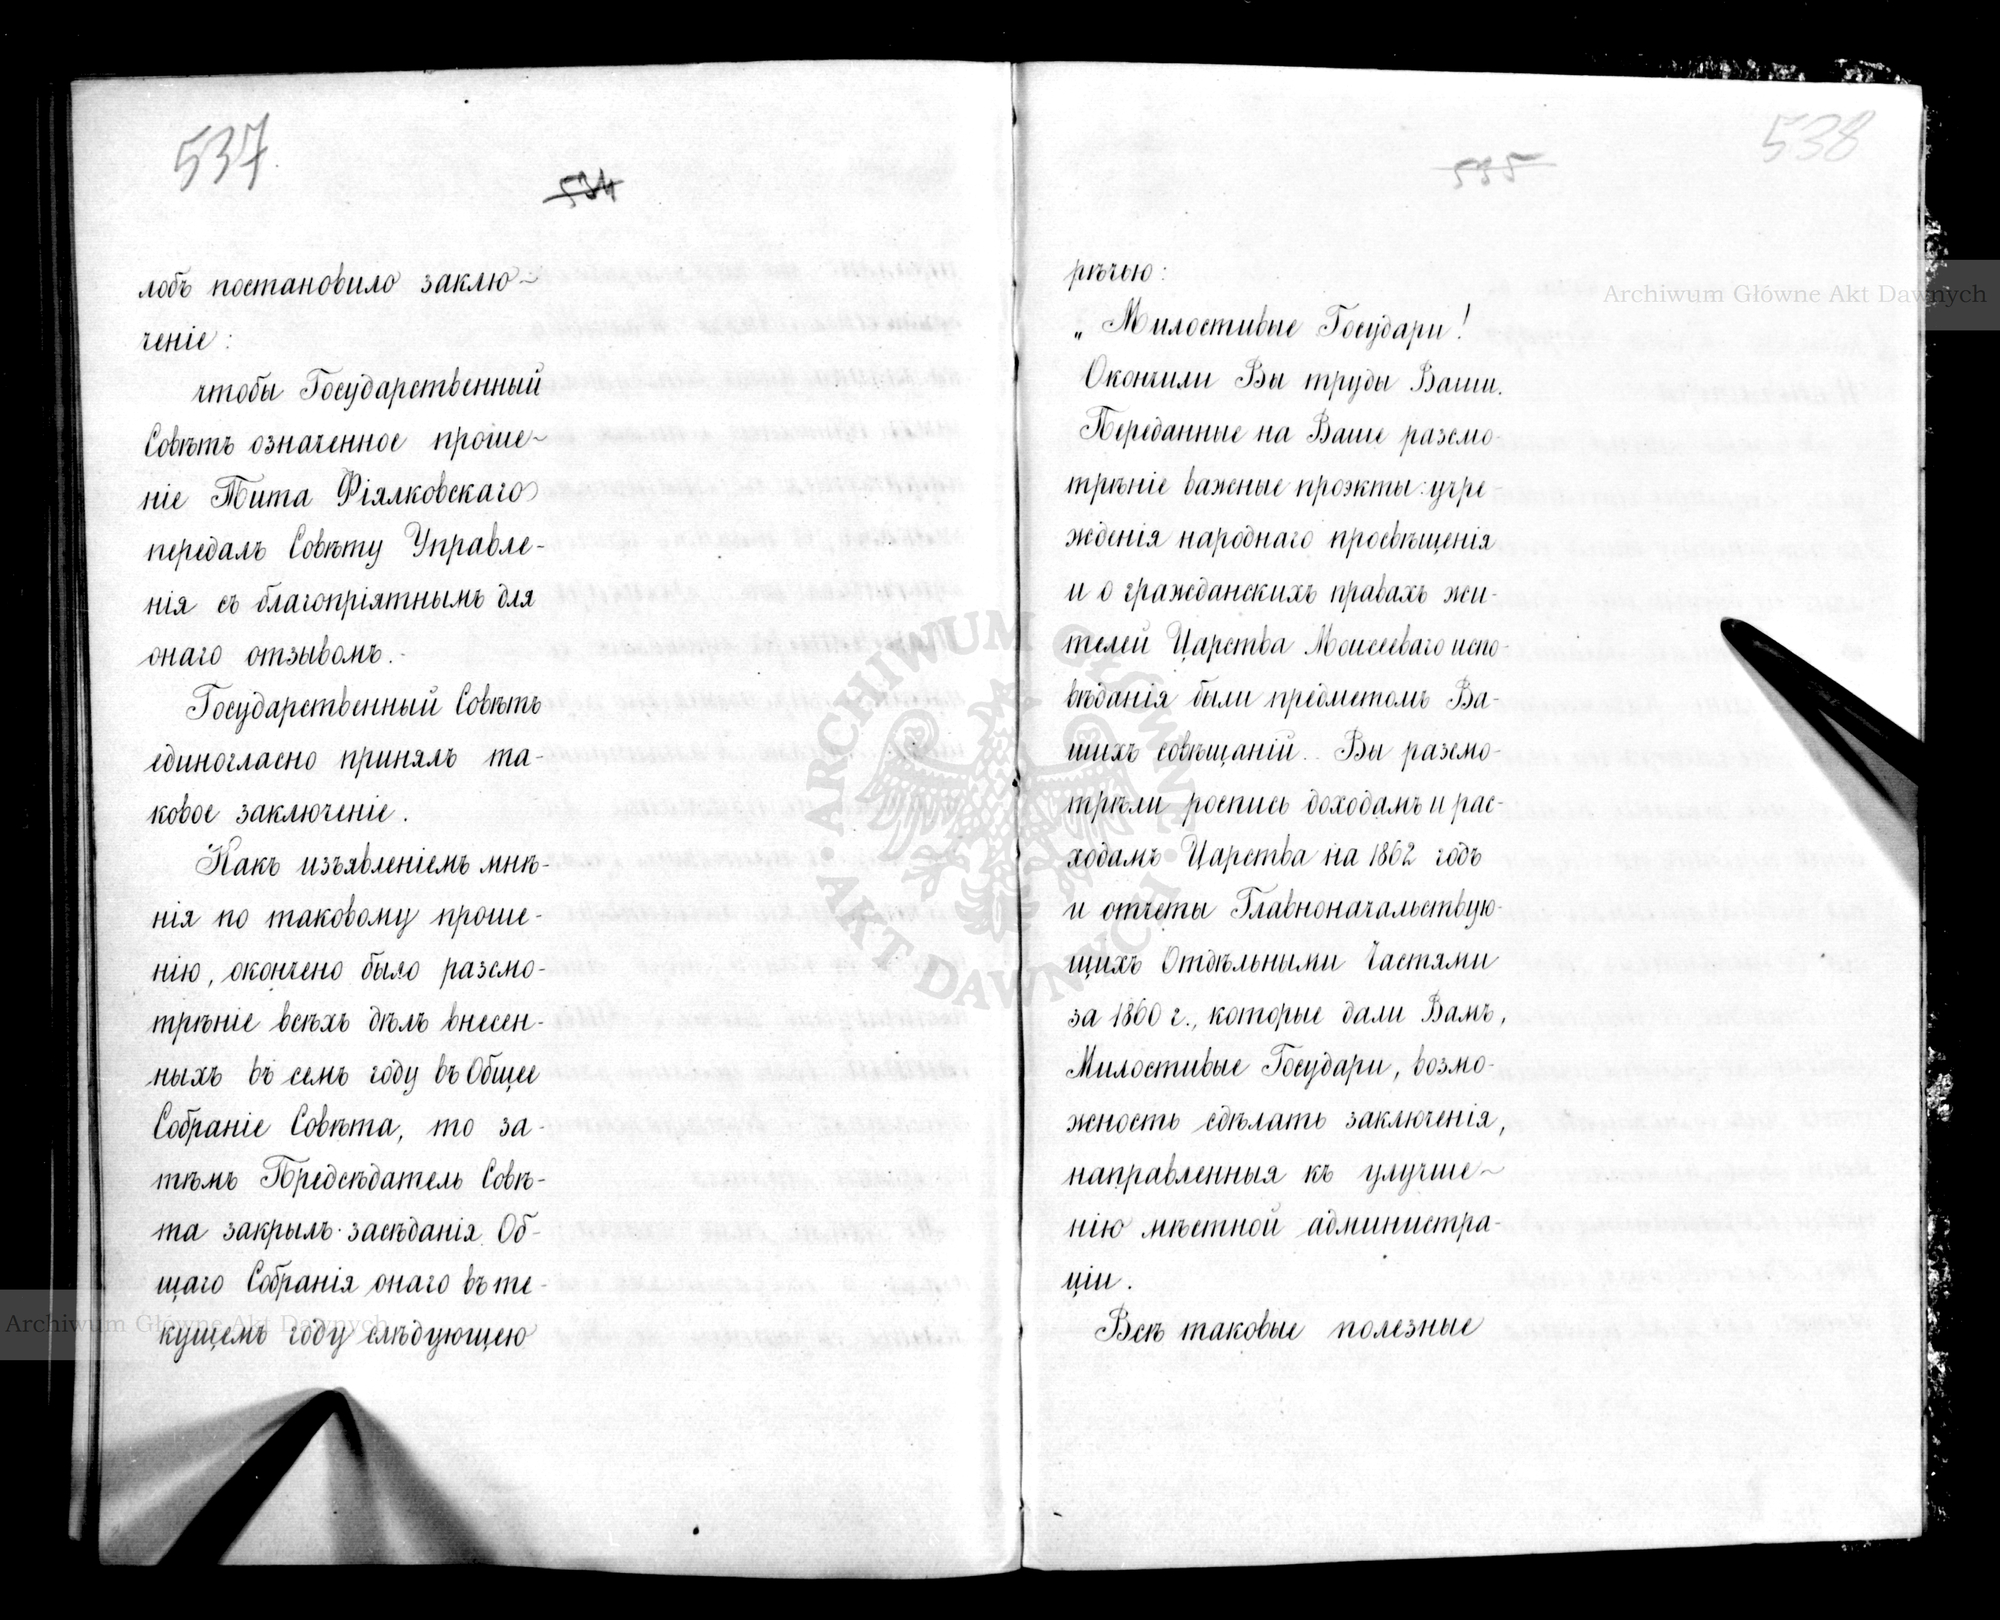 537
534
лобъ постановило заклю-
ченіе:
чтобы Государственный
Совѣтъ означенное проше-
ніе Тита Фіялковскаго
передалъ Совѣту Управле-
нія съ благопріятнымъ для
онаго отзывомъ.
Государственный Совѣтъ
единогласно принялъ та-
ковое заключеніе.
Какъ изъявленіемъ мнѣ-
нія по таковому проше-
нію, окончено было разсмо-
трѣніе всѣхъ дѣлъ внесен-
ныхъ въ семъ году въ Общее
Собраніе Совѣта, то за-
тѣмъ Предсѣдатель Совѣ-
та закрылъ засѣданія Об-
щаго Собранія онаго въ те-
кущемъ году слѣдующею
538
535
рѣчью:
„Милостивые Государи!
Окончили Вы труды Ваши.
Переданные на Ваше разсмо-
трѣніе важные проэкты: учре-
жденія народнаго просвѣщенія
и о гражданскихъ правахъ жи-
телей Царства Моисееваго испо-
вѣданія были предметомъ Ва-
шихъ совѣщаній. Вы разсмо-
трѣли роспись доходамъ и рас-
ходамъ Царства на 1862 годъ
и отчеты Главноначальствую-
щихъ Отдѣльными Частями
за 1860 г., которые дали Вамъ,
Милостивые Государи, возмо-
жность сдѣлать заключенія,
направленныя къ улучше-
нію мѣстной администра-
ціи.
Всѣ таковые полезные
Archiwum Główne Akt Dawnych
Archiwum Główne Akt Dawnych
ARCHIWUM GŁÓWNE AKT DAWNYCH